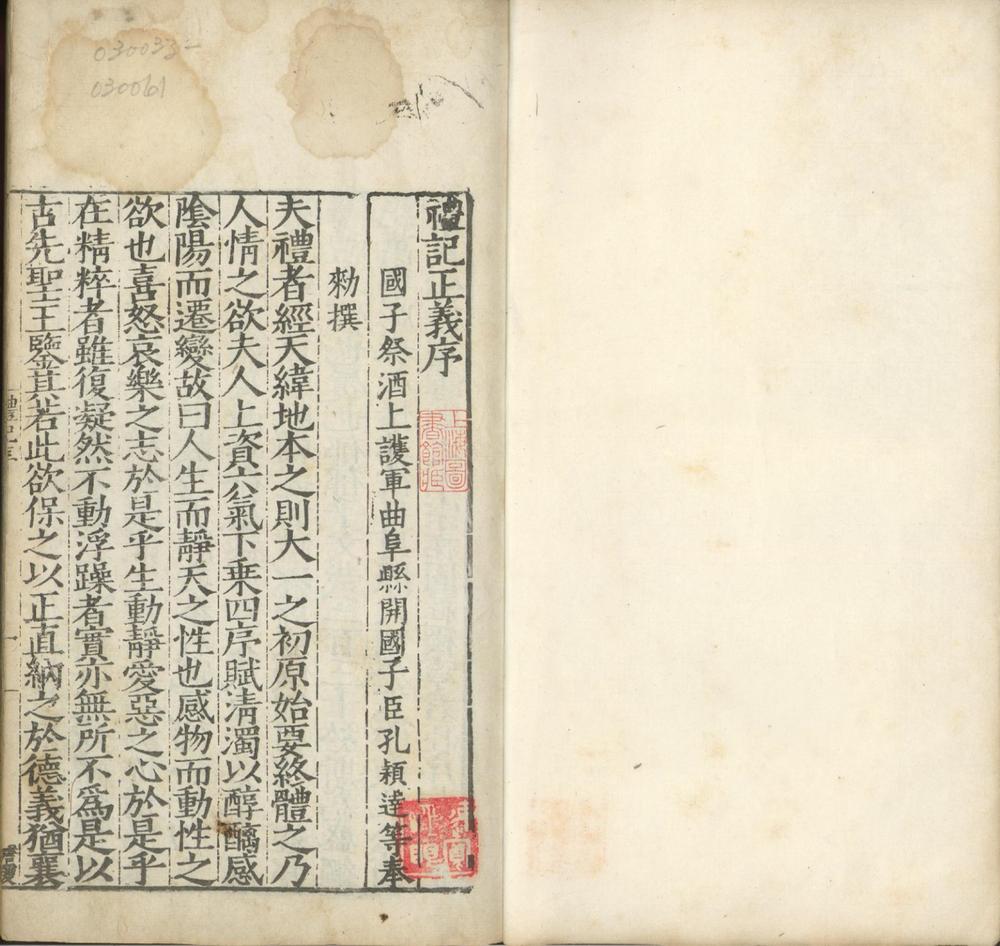 禮記正義序
國子祭酒上護軍曲阜縣開國子臣孔穎達等奉
勑撰
夫禮者經天緯地本之則大一之初原始要終體之乃
人情之欲夫人上資六氣下乗四序賦清濁以醇醨感
陰陽而遷變故曰人生而靜天之性也感物而動性之
欲也喜怒哀樂之志於是乎生動靜愛惡之心於是乎
在精粹者雖復凝然不動浮躁者實亦無所不爲是以
古先聖王鑒其若此欲保之以正直納之於德義猶襄
上海圖
書館臧
030033
030061